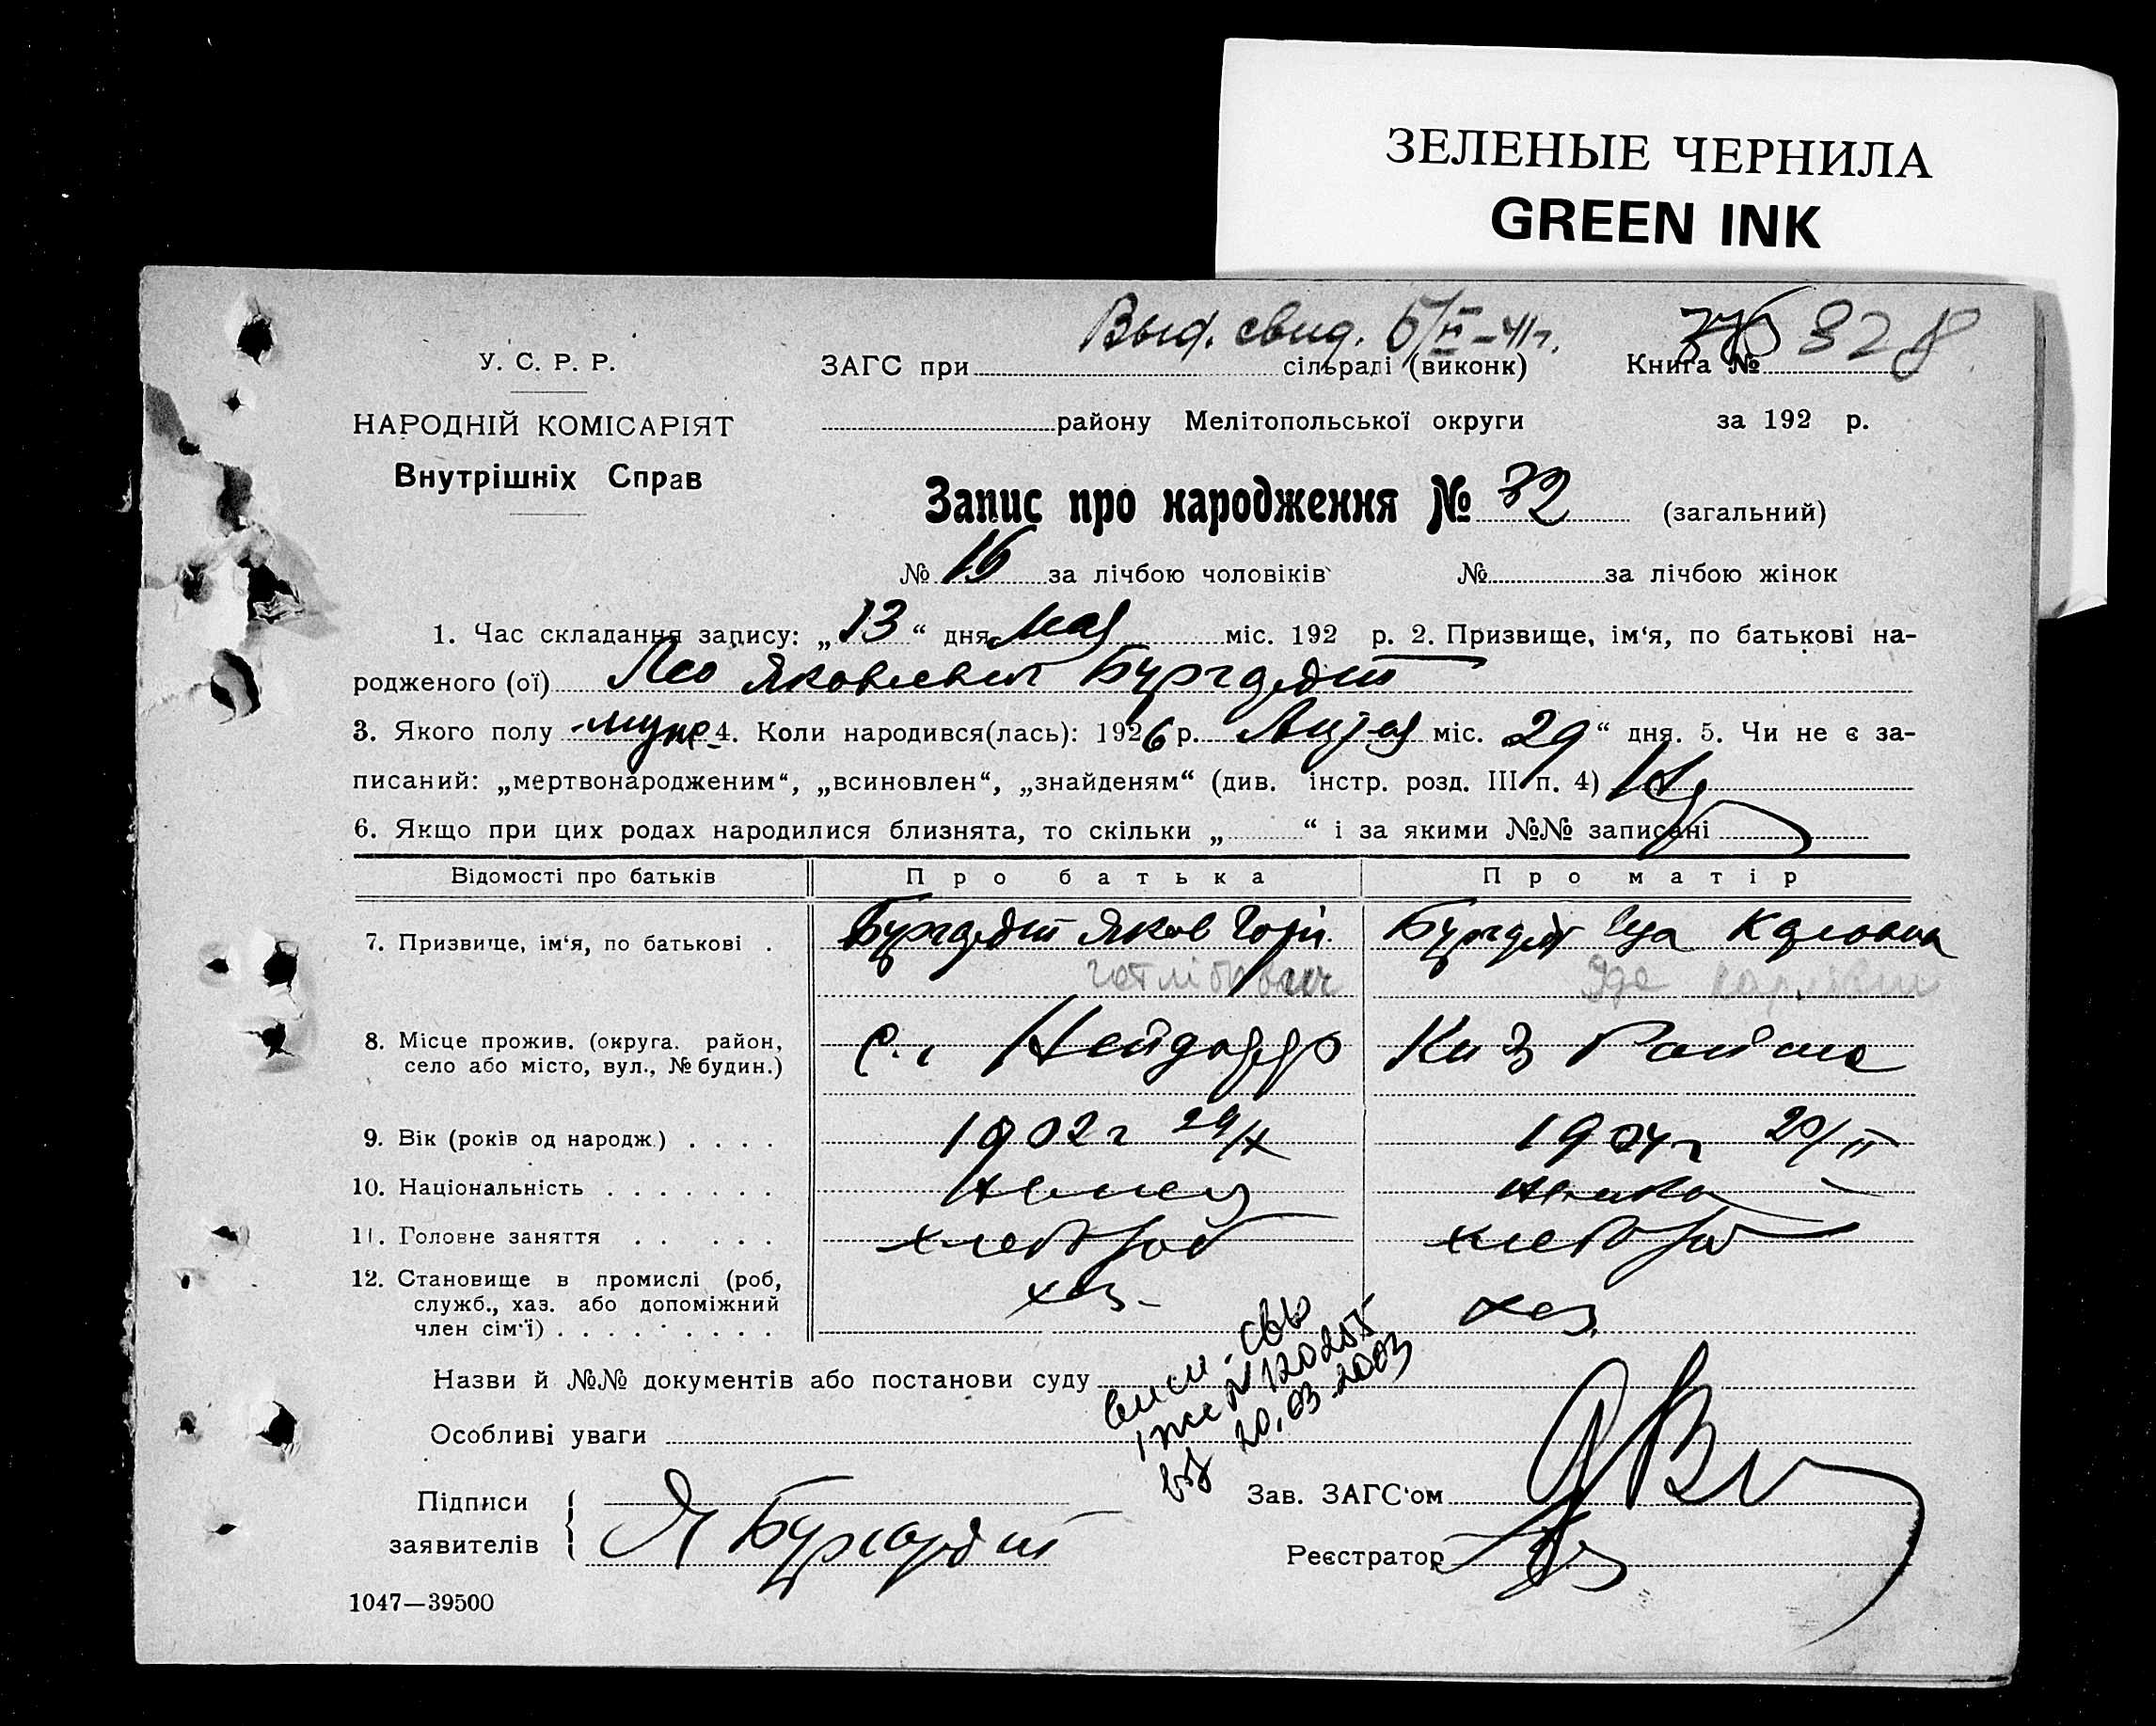 ЗЕЛЕНЫЕ ЧЕРНИЛА
GREEN INK
Выд. свид. 5/II-41г.
328
У. С. Р. Р.
ЗАГС при сільраді (виконк) Книга №
НАРОДНІЙ КОМІСАРІЯТ
району Мелітопольської округи за 192 р.
Внутрішніх Справ
Запис про народження № 32 (загальний)
№ 16 за лічбою чоловіків № за лічбою жінок
1. Час складання запису: „13“ дня мая міс. 192 р. 2. Призвище, ім‘я, по батькові на-
родженого (ої) Лео Яковлевич Бургардт
3. Якого полу муж. 4. Коли народився(лась): 1926 р. міс. 29“ дня. 5. Чи не є за-
писаний: „мертвонародженим“, „всиновлен“, „знайденям“ (див. інстр. розд. III п. 4)
6. Якщо при цих родах народилися близнята, то скільки „ “ і за якими №№ записані
Відомості про батьків Про батька Про матір
7. Призвище, ім‘я, по батькові . Бургардт Яков Бургардт Ида Карловна
Готлібович Яда Карлівни
8. Місце прожив. (округа. район, село або місто, вул., № будин.) с. Нейдорф
9. Вік (років од народж.) . . . . 1902г 29/IX 1904г 20/II
10. Національність . . . . . . . немец немка
11. Головне заняття . . . . . хлебороб хлебороб
12. Становище в промислі (роб, служб., хаз. або допоміжний член сім‘ї) . . . . . . . . . хаз. хаз.
Назви й №№ документів або постанови суду
№ 120255
від 20.03.2003
Особливі уваги
Підписи заявителів Я Бургардт
Зав. ЗАГС‘ом
Реєстратор
1047—39500